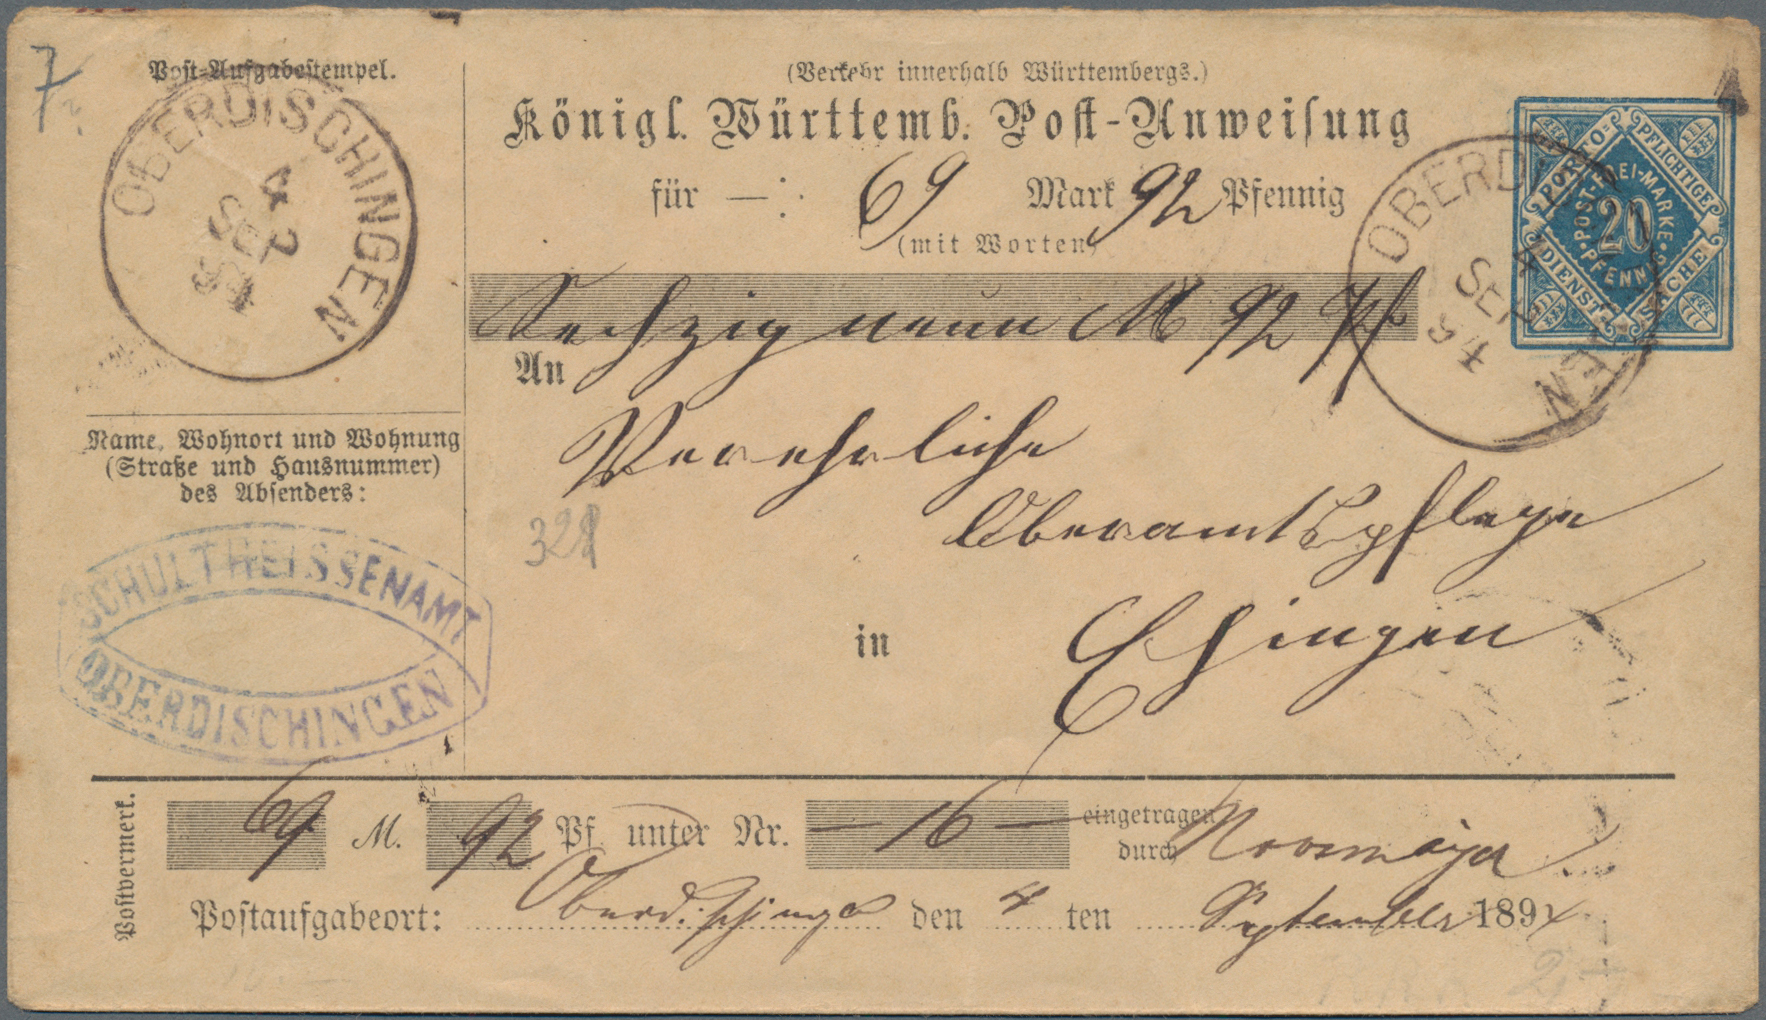 7
Post-Aufgabestempel.
OBERDISCHINGEN
4
SEP
94
(Verkehr innerhalb Württembergs.)
Königl. Württemb. Post-Anweisung
für 69 Mark 92 Pfennig
(mit Worten)
Sechzig neun M 92 Pf
PORTO=PFLICHTIGE
DIENST SACHE
POST-FREI-MARKE
20
PFENNIG
OBERDI EN
4
SEP
94
An
Verehrliche
Oberamtspflege
in Ehingen
Name, Wohnort und Wohnung
(Straße und Hausnummer)
des Absenders:
SCHULTHEISSENAMT
OBERDISCHINGEN
Postvermerk.
69 M. 92 Pf. unter Nr. — 16 — eingetragen
durch
Postaufgabeort: Oberdischingen den 4 ten September 1894